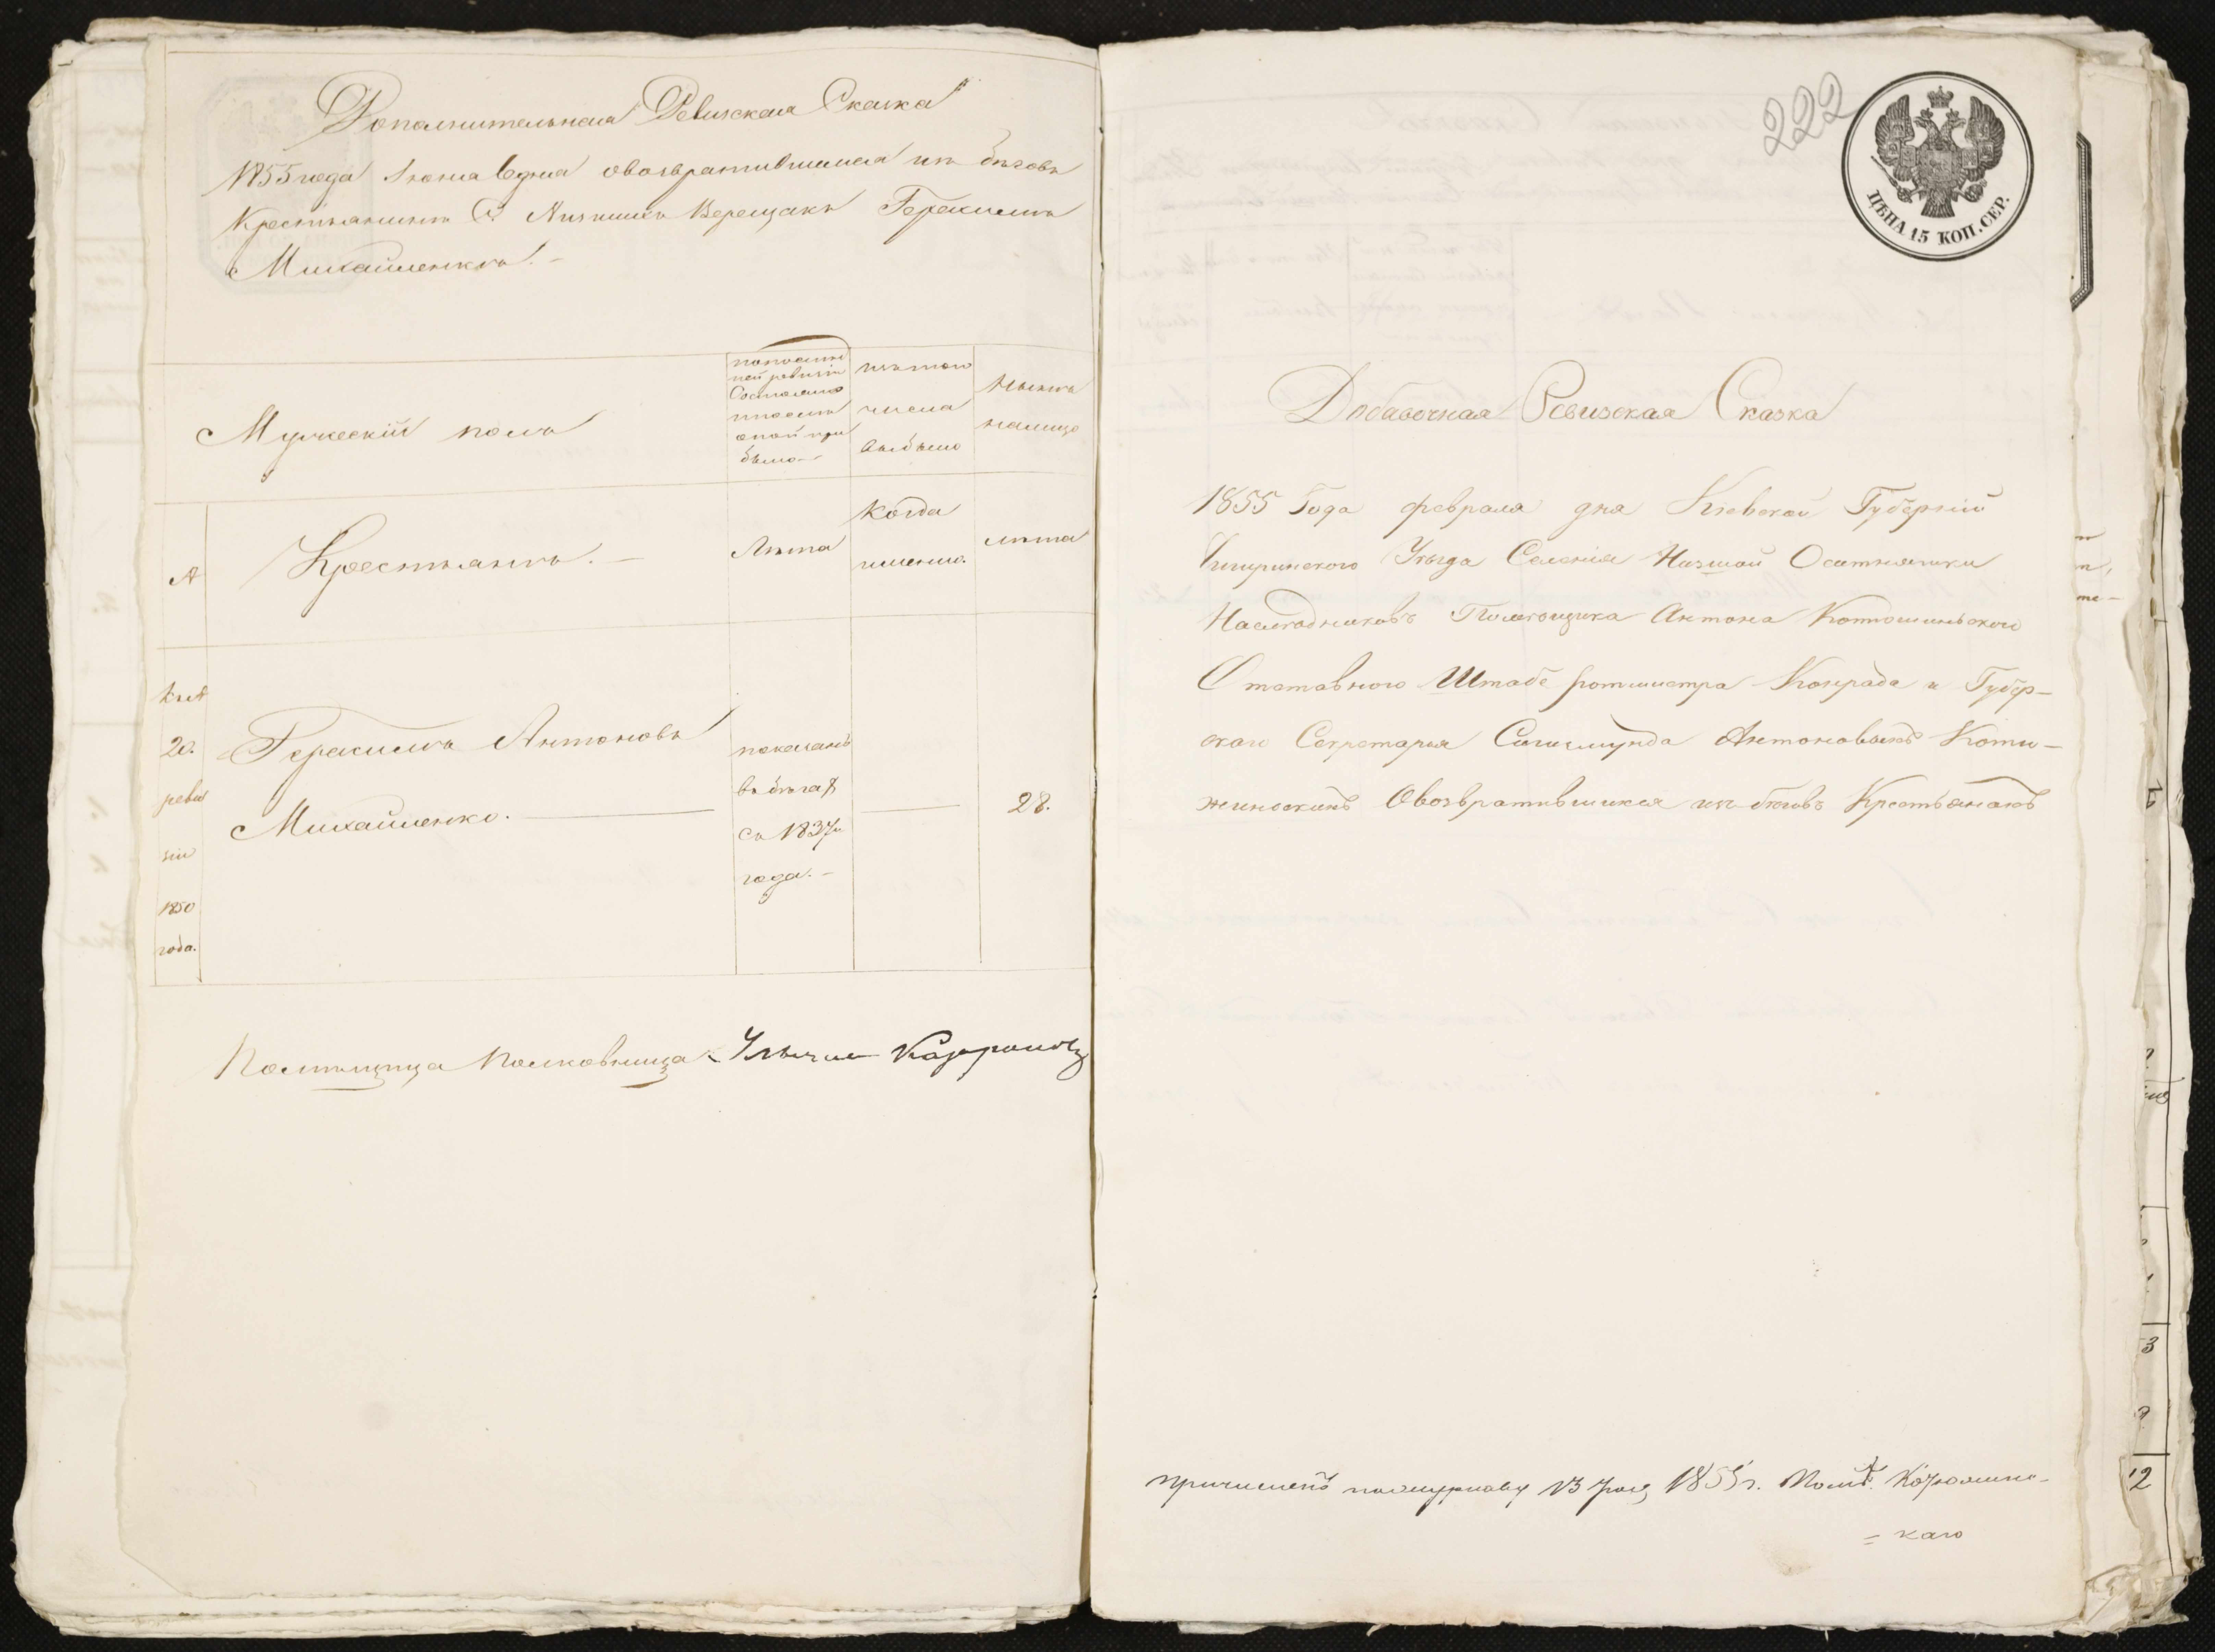 Дополнительная Ревизская Сказка
1855 года Іюня дня о возвратившемся изъ бѣговъ
Крестьянинѣ С. Низшихъ Верещакъ Герасимѣ
Михайленкѣ. –
Мужескій полъ
по послѣд
ней ревизіи
Состояло
и послѣ
оной при
было –
изъ того
числа
выбыло
Нынѣ
налицо
№
Крестьянѣ. –
Лѣта
Когда
именно.
лѣта
къ №
20.
реви
зіи
1850
года.
Герасимъ Антоновъ
Михайленко.
показанъ
въ бѣгах
съ 1837го
года. –
28.
Помѣщица Полковница
222
ЦѢНА 15 КОП. СЕР.
Добавочная Ревизская Сказка
1855 Года февраля дня Кіевской Губерніи
Чигиринского Уѣзда Селенія Низшой Осотнянки
Наслѣдниковъ Помѣщика Антона
Отставного Штабс ротмистра Конрада и Губер–
скаго Секретаря Сигизмунда Антоновыхъ
О возвратившихся изъ бѣговъ Крестьянахъ
причисленъ по журналу 13 1855 г. Помѣщ.
= каго